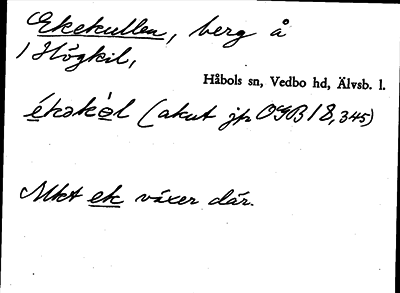 Ekekullen, berg å
1 Högkil,
Håbols sn, Vedbo hd, Älvsb. l.
ékəkòl (akut jfr OGB 18, 345)
Mkt ek växer där.